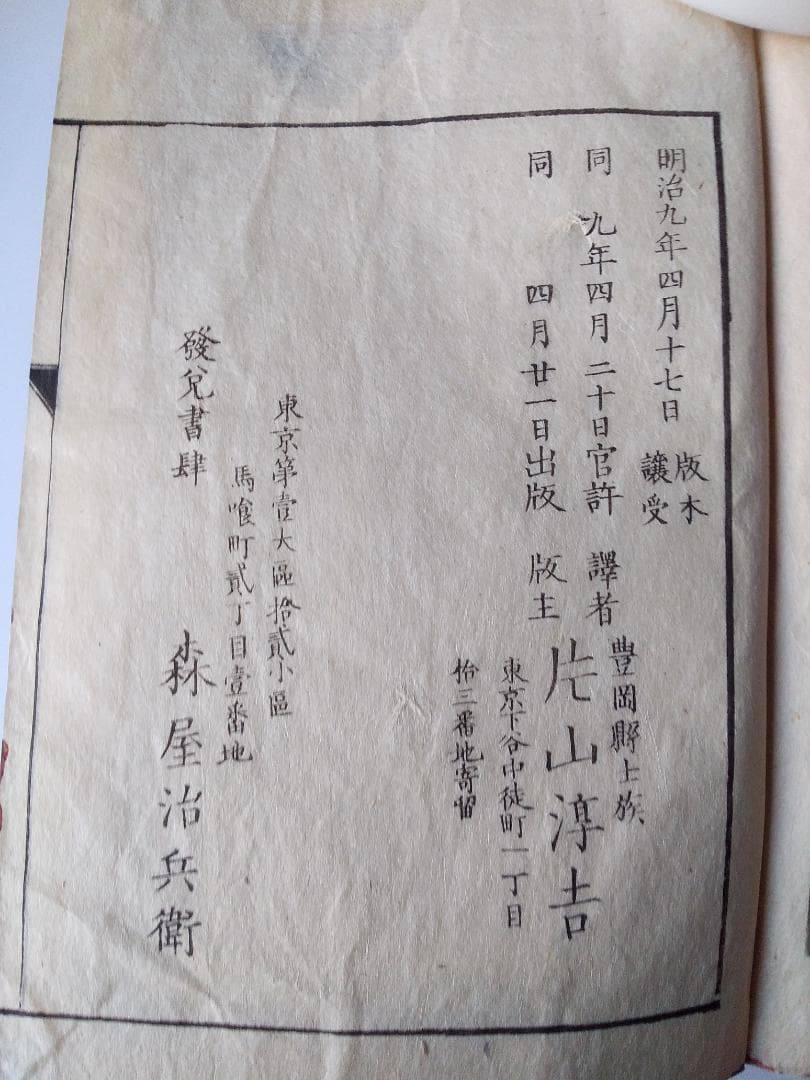 明治九年四月十七日 版木讓受
同 九年四月二十日官許
同 四月廿一日出版
譯者
版主
豊岡縣士族
片山淳吉
東京下谷中徒町一丁目
拾三番地寄留
東京第壹大區拾貳小區
馬喰町貳丁目壹番地
發兌書肆 森屋治兵衛